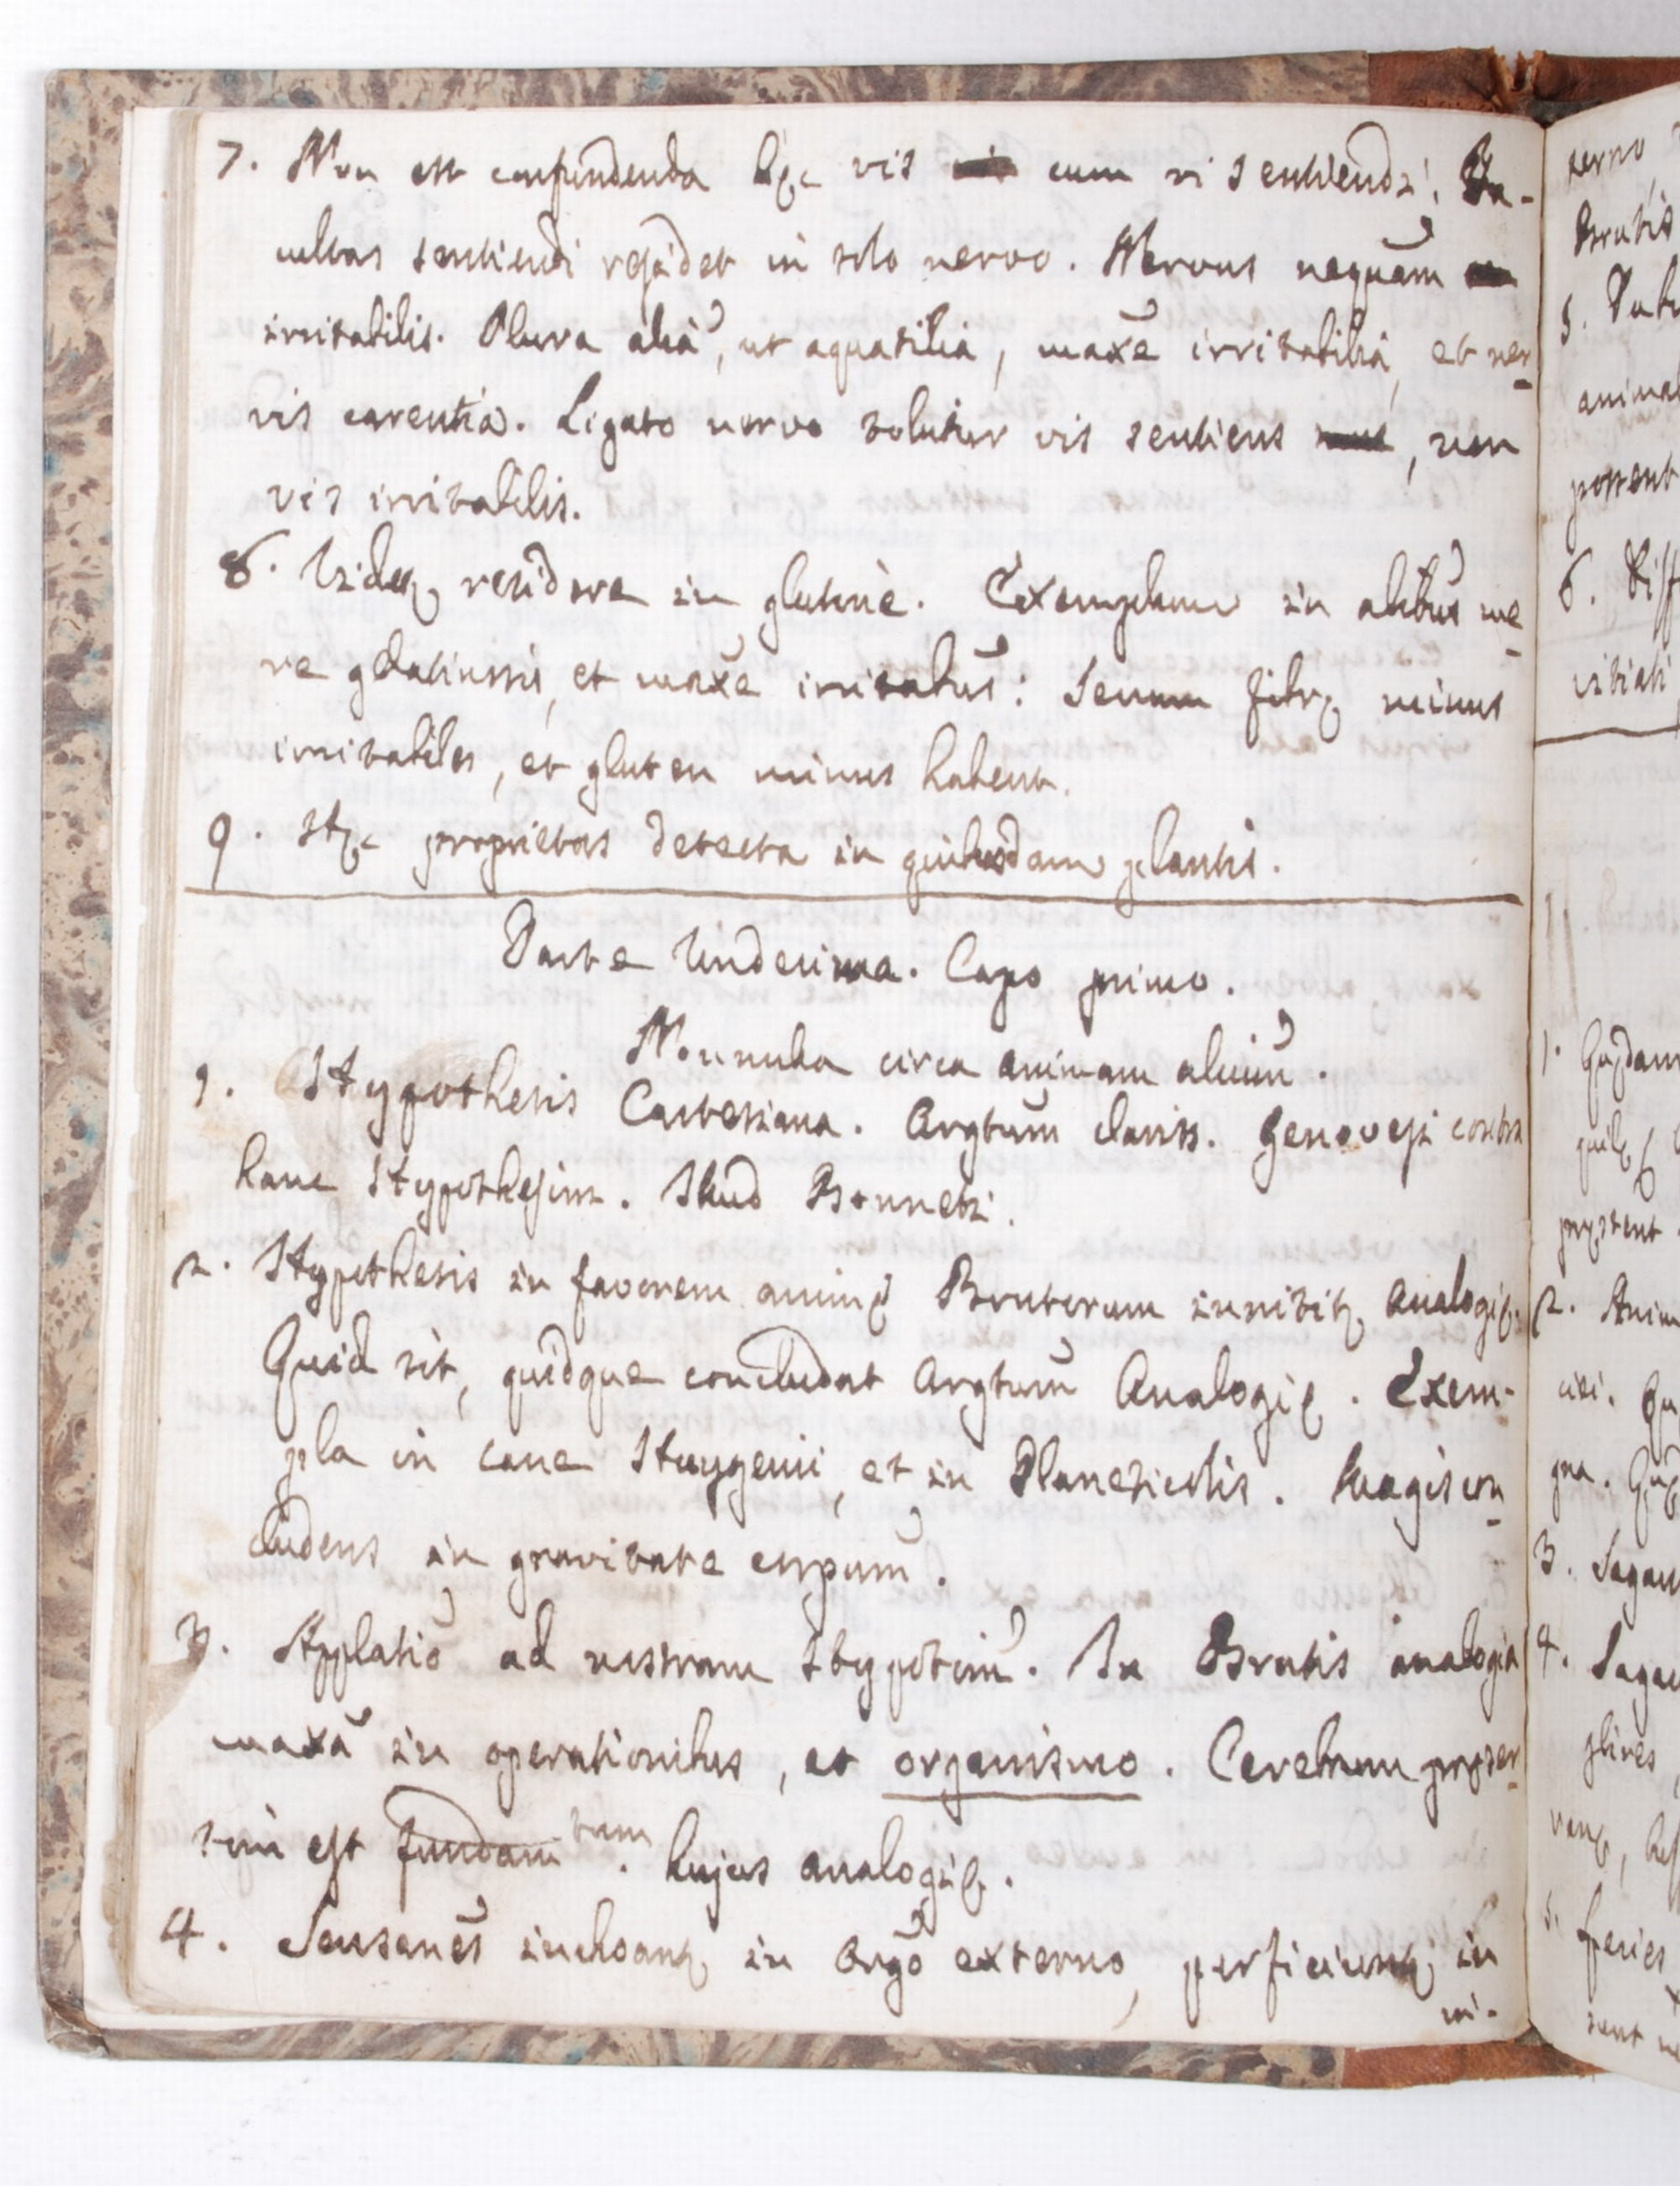 7. Non est confundenda hęc vis cum vi sentiendi. Fa-
cultas sentiendi residet in solo nervo. Nervus nequam
irritabilis. Plura alia, ut aquatilia, maxe irritabilia, et ner
vis carentia. Ligato nervo tolitur vis sentiens, non
vis irritabilis.
8. Videtꝫ residere in glutine. Exemplum in alibus me
re gelatinosis, et maxe irritabus: Senum fibrę minus
irritabiles, et gluten minus habent.
9. Hęc proprietas detecta in quibusdam plantis.
Parte Undecima. Capo primo.
Nonnulla circa animam alium.
1. Hypothesis Cartesiana. Argtum clariss. Genovesi contra
hanc Hypothesim. Illud Bonneti.
2. Hypothesis in favorem animę Brutorum innititꝫ analogię.
Quid sit, quidque concludat Argtum Analogię. Exem-
pla in cane Huygenii, et in Planeticolis. Magis con
cludens in gravitate corpum.
3. Applatio ad nostram Hypotim. In Brutis analogia
maxa in operationibus, et organismo. Cerebrum pręser
tim est fundamtum hujus analogię.
4. Sensanes inchoantꝫ in Orgo externo, perficiuntꝫ in
in-
xerno
Brutis
5.
animal
possent
6. Diff
vitiati
1. Quędam
pręstent
2. Anim
cici. Qu
gna. Quę
3. Sagaci
4. Sagaci
glires
5.
sunt